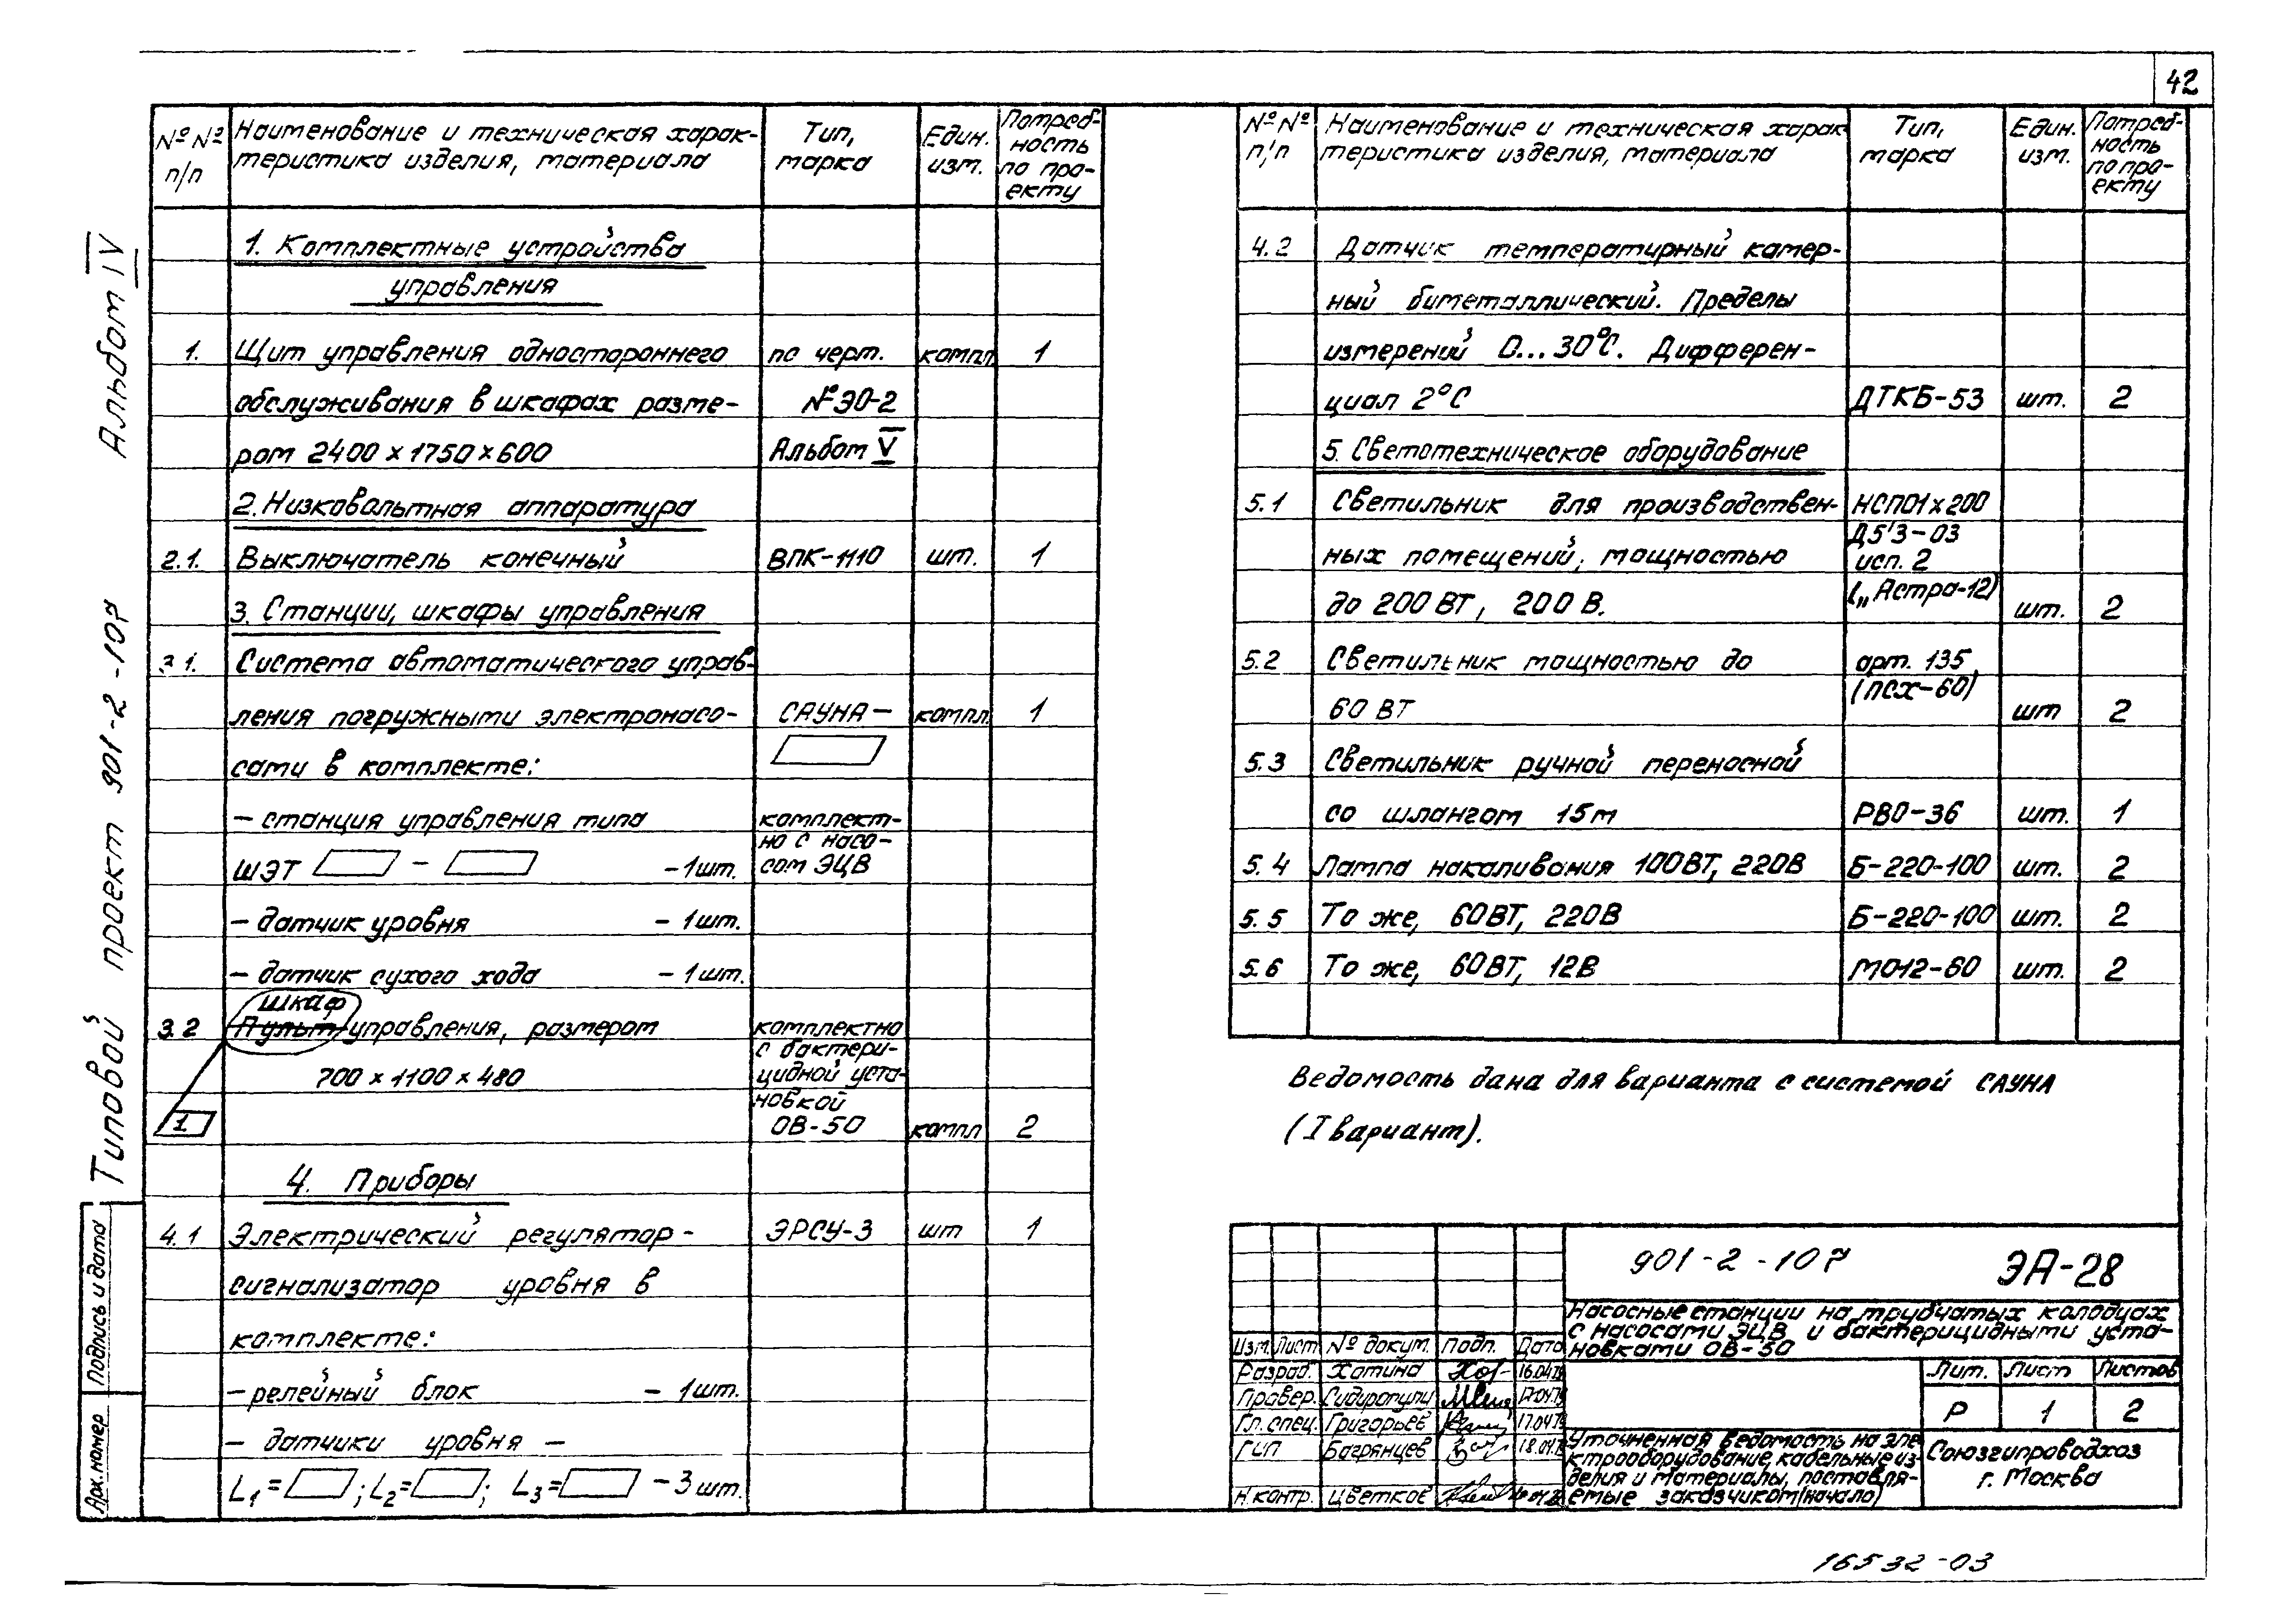 42
Альбом IV
Типовой проект 901-2-107
Подпись и дата
Арх. номер
№№ п/п
Наименование и техническая харак-
теристика изделия, материала
Тип,
марка
Един.
изм.
Потреб-
ность
по про-
екту
1. Комплектные устройства
управления
1. Щит управления одностороннего по черт. компл 1
обслуживания в шкафах разме- № ЭО-2
ром 2400 х 1750 х 600 Альбом V
2. Низковольтная аппаратура
2.1. Выключатель конечный ВПК-1110 шт. 1
3. Станции, шкафы управления
3.1. Система автоматического управ-
ления погружными электронасо- САУНА- компл. 1
сами в комплекте:
- станция управления типа комплект-
но с насо-
ШЭТ - - 1шт. сом ЭЦВ
- датчик уровня - 1шт.
- датчик сухого хода - 1шт.
шкаф
3.2 Пульт управления, размером комплектно
с бактери-
700 х 1100 х 480 цидной уста-
новкой
1 ОВ-50 компл 2
4. Приборы
4.1 Электрический регулятор- ЭРСУ-3 шт 1
сигнализатор уровня в
комплекте:
- релейный блок - 1шт.
- датчики уровня -
L1= ; L2= ; L3= - 3 шт.
№№ п/п
Наименование и техническая харак
теристика изделия, материала
Тип,
марка
Един.
изм.
Потреб-
ность
по про-
екту
4.2 Датчик температурный камер-
ный биметаллический. Пределы
измерений 0...30°С. Дифферен-
циал 2°С ДТКБ-53 шт. 2
5. Светотехническое оборудование
5.1 Светильник для производствен- НСП01х200
Д5'3-03
ных помещений, мощностью исп. 2
до 200 ВТ, 200 В. („Астра-12) шт. 2
5.2 Светильник мощностью до арт. 135
(ПСХ-60)
60 ВТ шт 2
5.3 Светильник ручной переносной
со шлангом 15м РВО-36 шт. 1
5.4 Лампа накаливания 100ВТ, 220В Б-220-100 шт. 2
5.5 То же, 60ВТ, 220В Б-220-100 шт. 2
5.6 То же, 60ВТ, 12В МО12-60 шт. 2
Ведомость дана для варианта с системой САУНА
(I вариант).
901-2-107 ЭА-28
Насосные станции на трубчатых колодцах
с насосами ЭЦВ и бактерицидными уста-
новками ОВ-50
Изм. Лист № докум. Подп. Дата
Разраб. Хатина 16.04
Провер. 17.04
Гл. спец. Григорьев 17.04
ГИП Багрянцев 18.04
Н.контр. Цветков
Лит. Лист Листов
Р 1 2
Уточненная ведомость на эле
ктрооборудование, кабельные из-
делия и материалы, поставля-
емые заказчиком (начало)
Союзгипроводхоз
г. Москва
16532-03